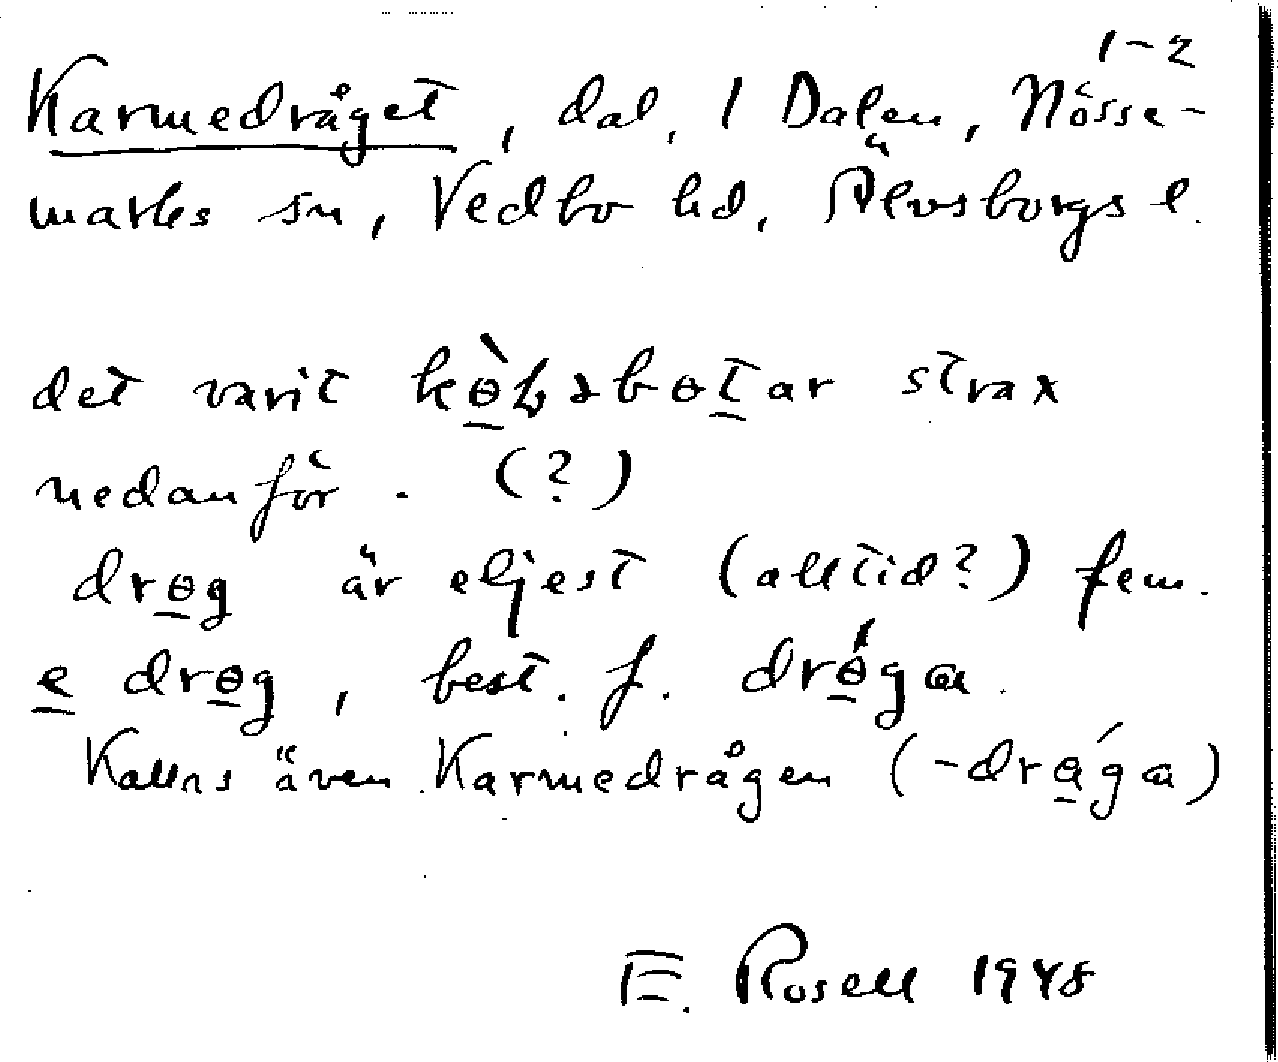 1-2
Karmedråget, dal, 1 Dalen, Nösse-
marks sn, Vedbo hd, Älvsborgs l.
det varit strax
nedanför. (?)
drɵg är eljest (alltid?) fem.
e drɵg, best. f. drɵ́ga.
Kallas även Karmedrågen (-drɵ́ga)
E. Rosell 1948